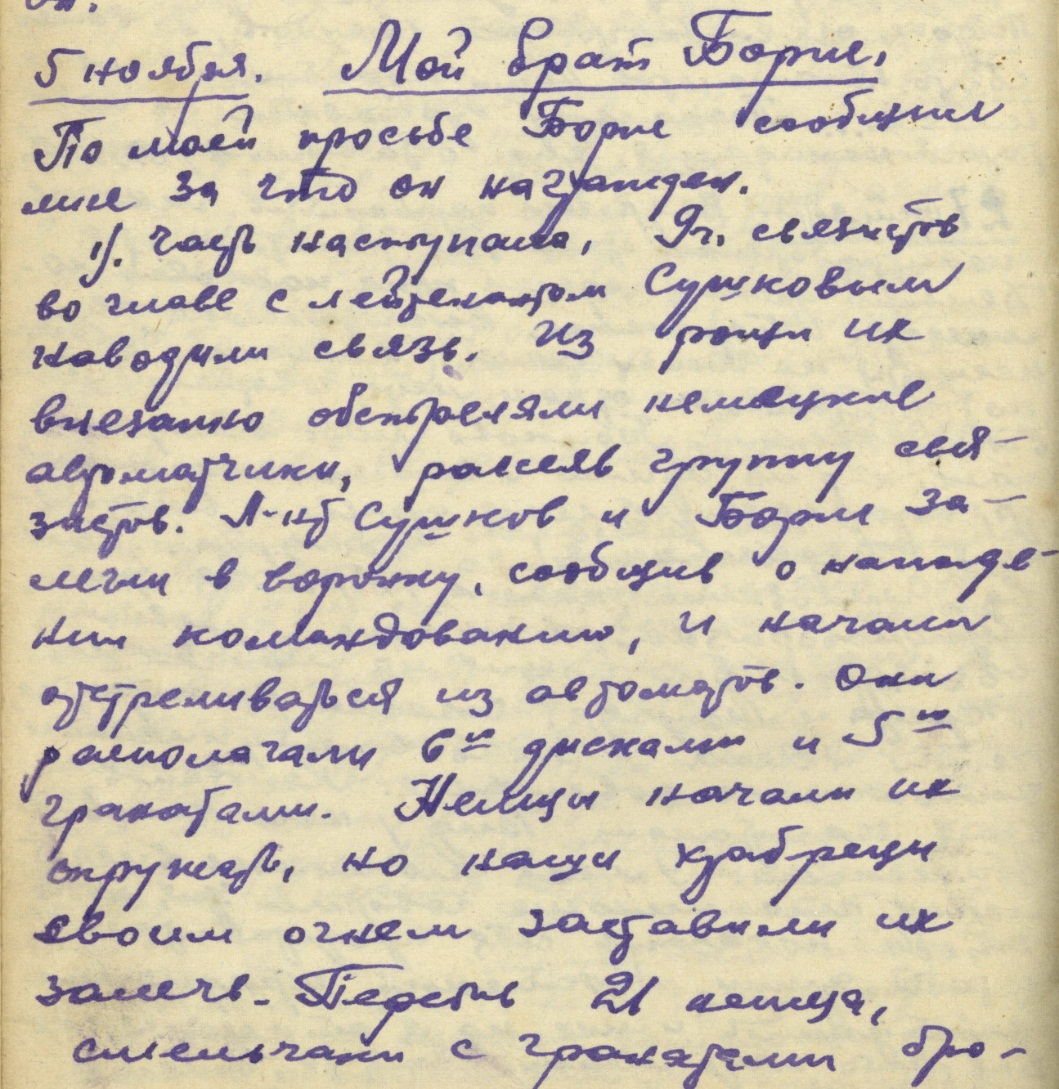 5 ноября. Мой брат Борис.
По моей просьбе Борис сообщил
мне за что он награжден.
1). Часть наступала, 9 ч. связистов
во главе с лейтенантом Сушковым
наводили связь. Из рощи их
внезапно обстреляли немецкие
автоматчики, рассеяв группу свя-
зистов. Л-нт Сушков и Борис за-
легли в воронку, сообщив о нападе-
нии командованию, и начали
отстреливаться из автоматов. Они
располагали 6ю дисками и 5ю
гранатами. Немцы начали их
окружать, но наши храбрецы
своим огнем заставили их
залечь. Перебив 21 немца,
смельчаки с гранатами бро-